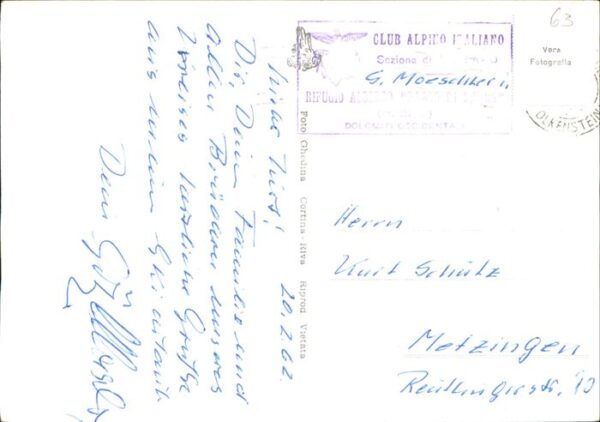 63
CLUB ALPINO ITALIANO
Sezione di
G. Moeschler
RIFUGIO ALBERTO
DOLOMITI OCCIDENTALI
Vera
Fotografia
WOLKENSTEIN
Foto Ghedina Cortina - Riva Riprod Vietata
20.2.62
Lieber Kurt!
Dir, Dein Familie und
Allen Brüdern unseres
Kreises herzliche Grüße
aus meinem Skiurlaub
Dein Götz
Herrn
Kurt Schütz
Metzingen
Reutlingerstr. 10